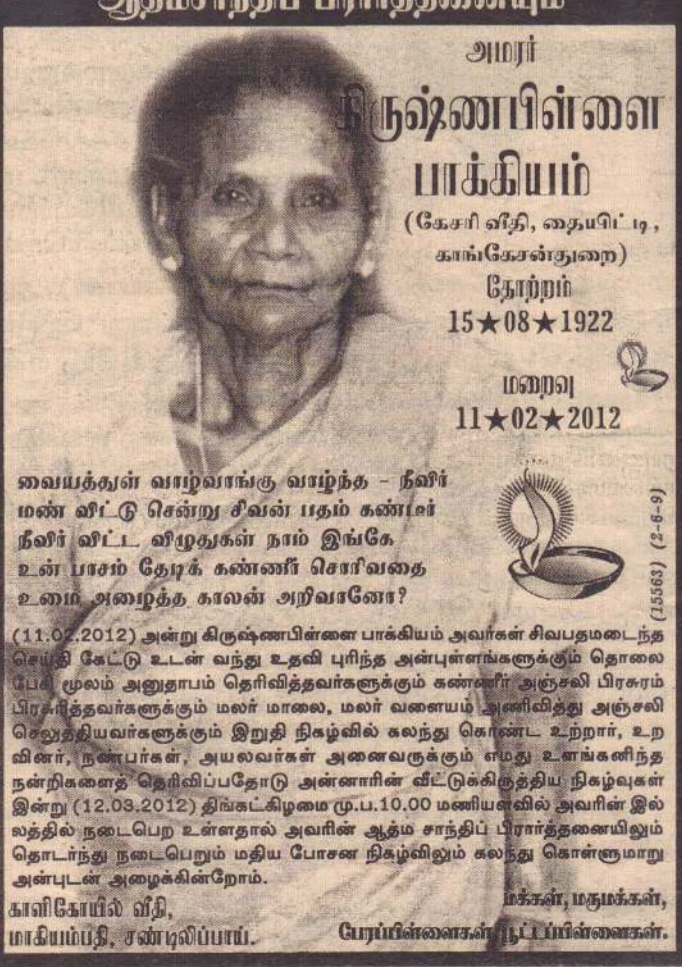 ஆத்மசாந்திப் பிரார்த்தனையும்
அமரர்
கிருஷ்ணபிள்ளை
பாக்கியம்
(கேசரி வீதி, தையிட்டி,
காங்கேசன்துறை)
தோற்றம்
15★08★1922
மறைவு
11★02★2012
வையத்துள் வாழ்வாங்கு வாழ்ந்த - நீவிர்
மண் விட்டு சென்று சிவன் பதம் கண்டீர்
நீவிர் விட்ட விழுதுகள் நாம் இங்கே
உன் பாசம் தேடிக் கண்ணீர் சொரிவதை
உமை அழைத்த காலன் அறிவானோ?
(15563) (2-6-9)
(11.02.2012) அன்று கிருஷ்ணபிள்ளை பாக்கியம் அவர்கள் சிவபதமடைந்த
செய்தி கேட்டு உடன் வந்து உதவி புரிந்த அன்புள்ளங்களுக்கும் தொலை
பேசி மூலம் அனுதாபம் தெரிவித்தவர்களுக்கும் கண்ணீர் அஞ்சலி பிரசுரம்
பிரசுரித்தவர்களுக்கும் மலர் மாலை, மலர் வளையம் அணிவித்து அஞ்சலி
செலுத்தியவர்களுக்கும் இறுதி நிகழ்வில் கலந்து கொண்ட உற்றார், உற
வினர், நண்பர்கள், அயலவர்கள் அனைவருக்கும் எமது உளங்கனிந்த
நன்றிகளைத் தெரிவிப்பதோடு அன்னாரின் வீட்டுக்கிருத்திய நிகழ்வுகள்
இன்று (12.03.2012) திங்கட்கிழமை மு.ப.10.00 மணியளவில் அவரின் இல்
லத்தில் நடைபெற உள்ளதால் அவரின் ஆத்ம சாந்திப் பிரார்த்தனையிலும்
தொடர்ந்து நடைபெறும் மதிய போசன நிகழ்விலும் கலந்து கொள்ளுமாறு
அன்புடன் அழைக்கின்றோம்.
காளிகோயில் வீதி,
மாகியம்பதி, சண்டிலிப்பாய்.
மக்கள், மருமக்கள்,
பேரப்பிள்ளைகள், பூட்டப்பிள்ளைகள்.